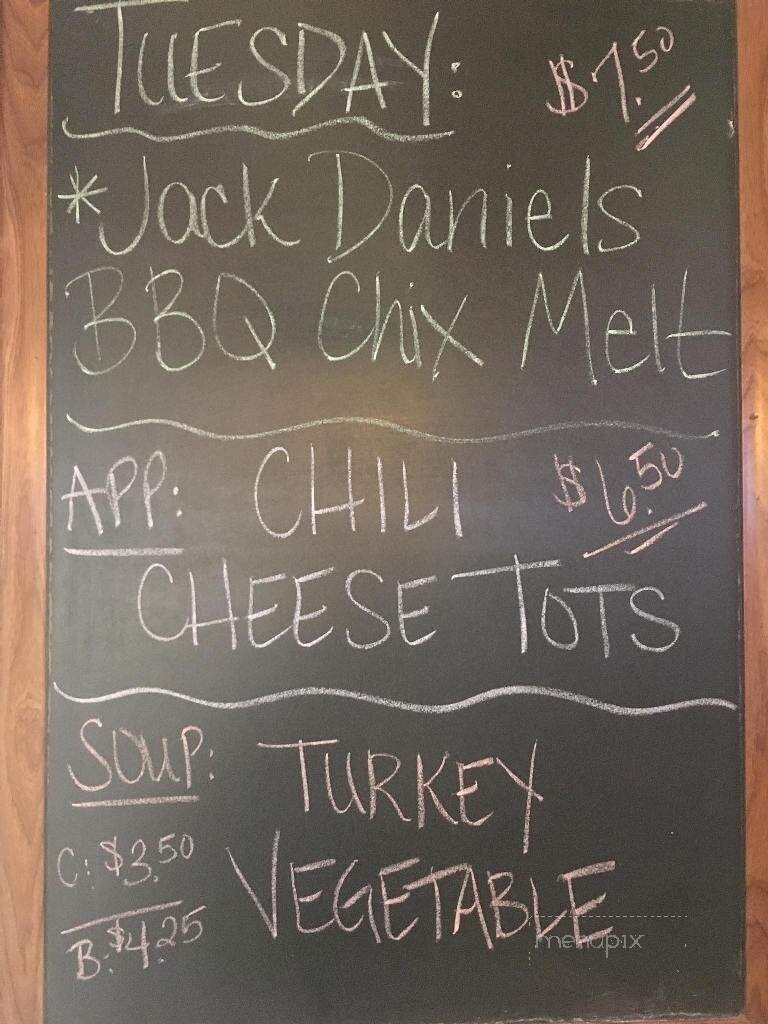 TUESDAY: $7.50
*Jack Daniels
BBQ Chix Melt
APP: CHILI $6.50
CHEESE TOTS
SOUP: TURKEY
C: $3.50 VEGETABLE
B: $4.25
menupix